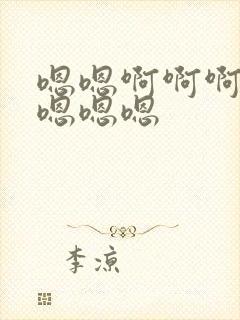 嗯嗯啊啊啊
嗯嗯嗯
李凉